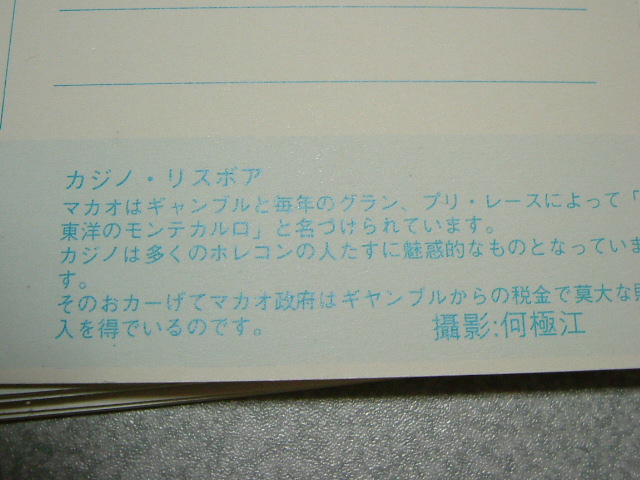 カジノ・リスボア
マカオはギャンブルと毎年のグラン、プリ・レースによって「
東洋のモンテカルロ」と名づけられています。
カジノは多くのホレコンの人たすに魅惑的なものとなっていま
す。
そのおカーげてマカオ政府はギヤンブルからの税金で莫大な
入を得でいるのです。
攝影:何極江